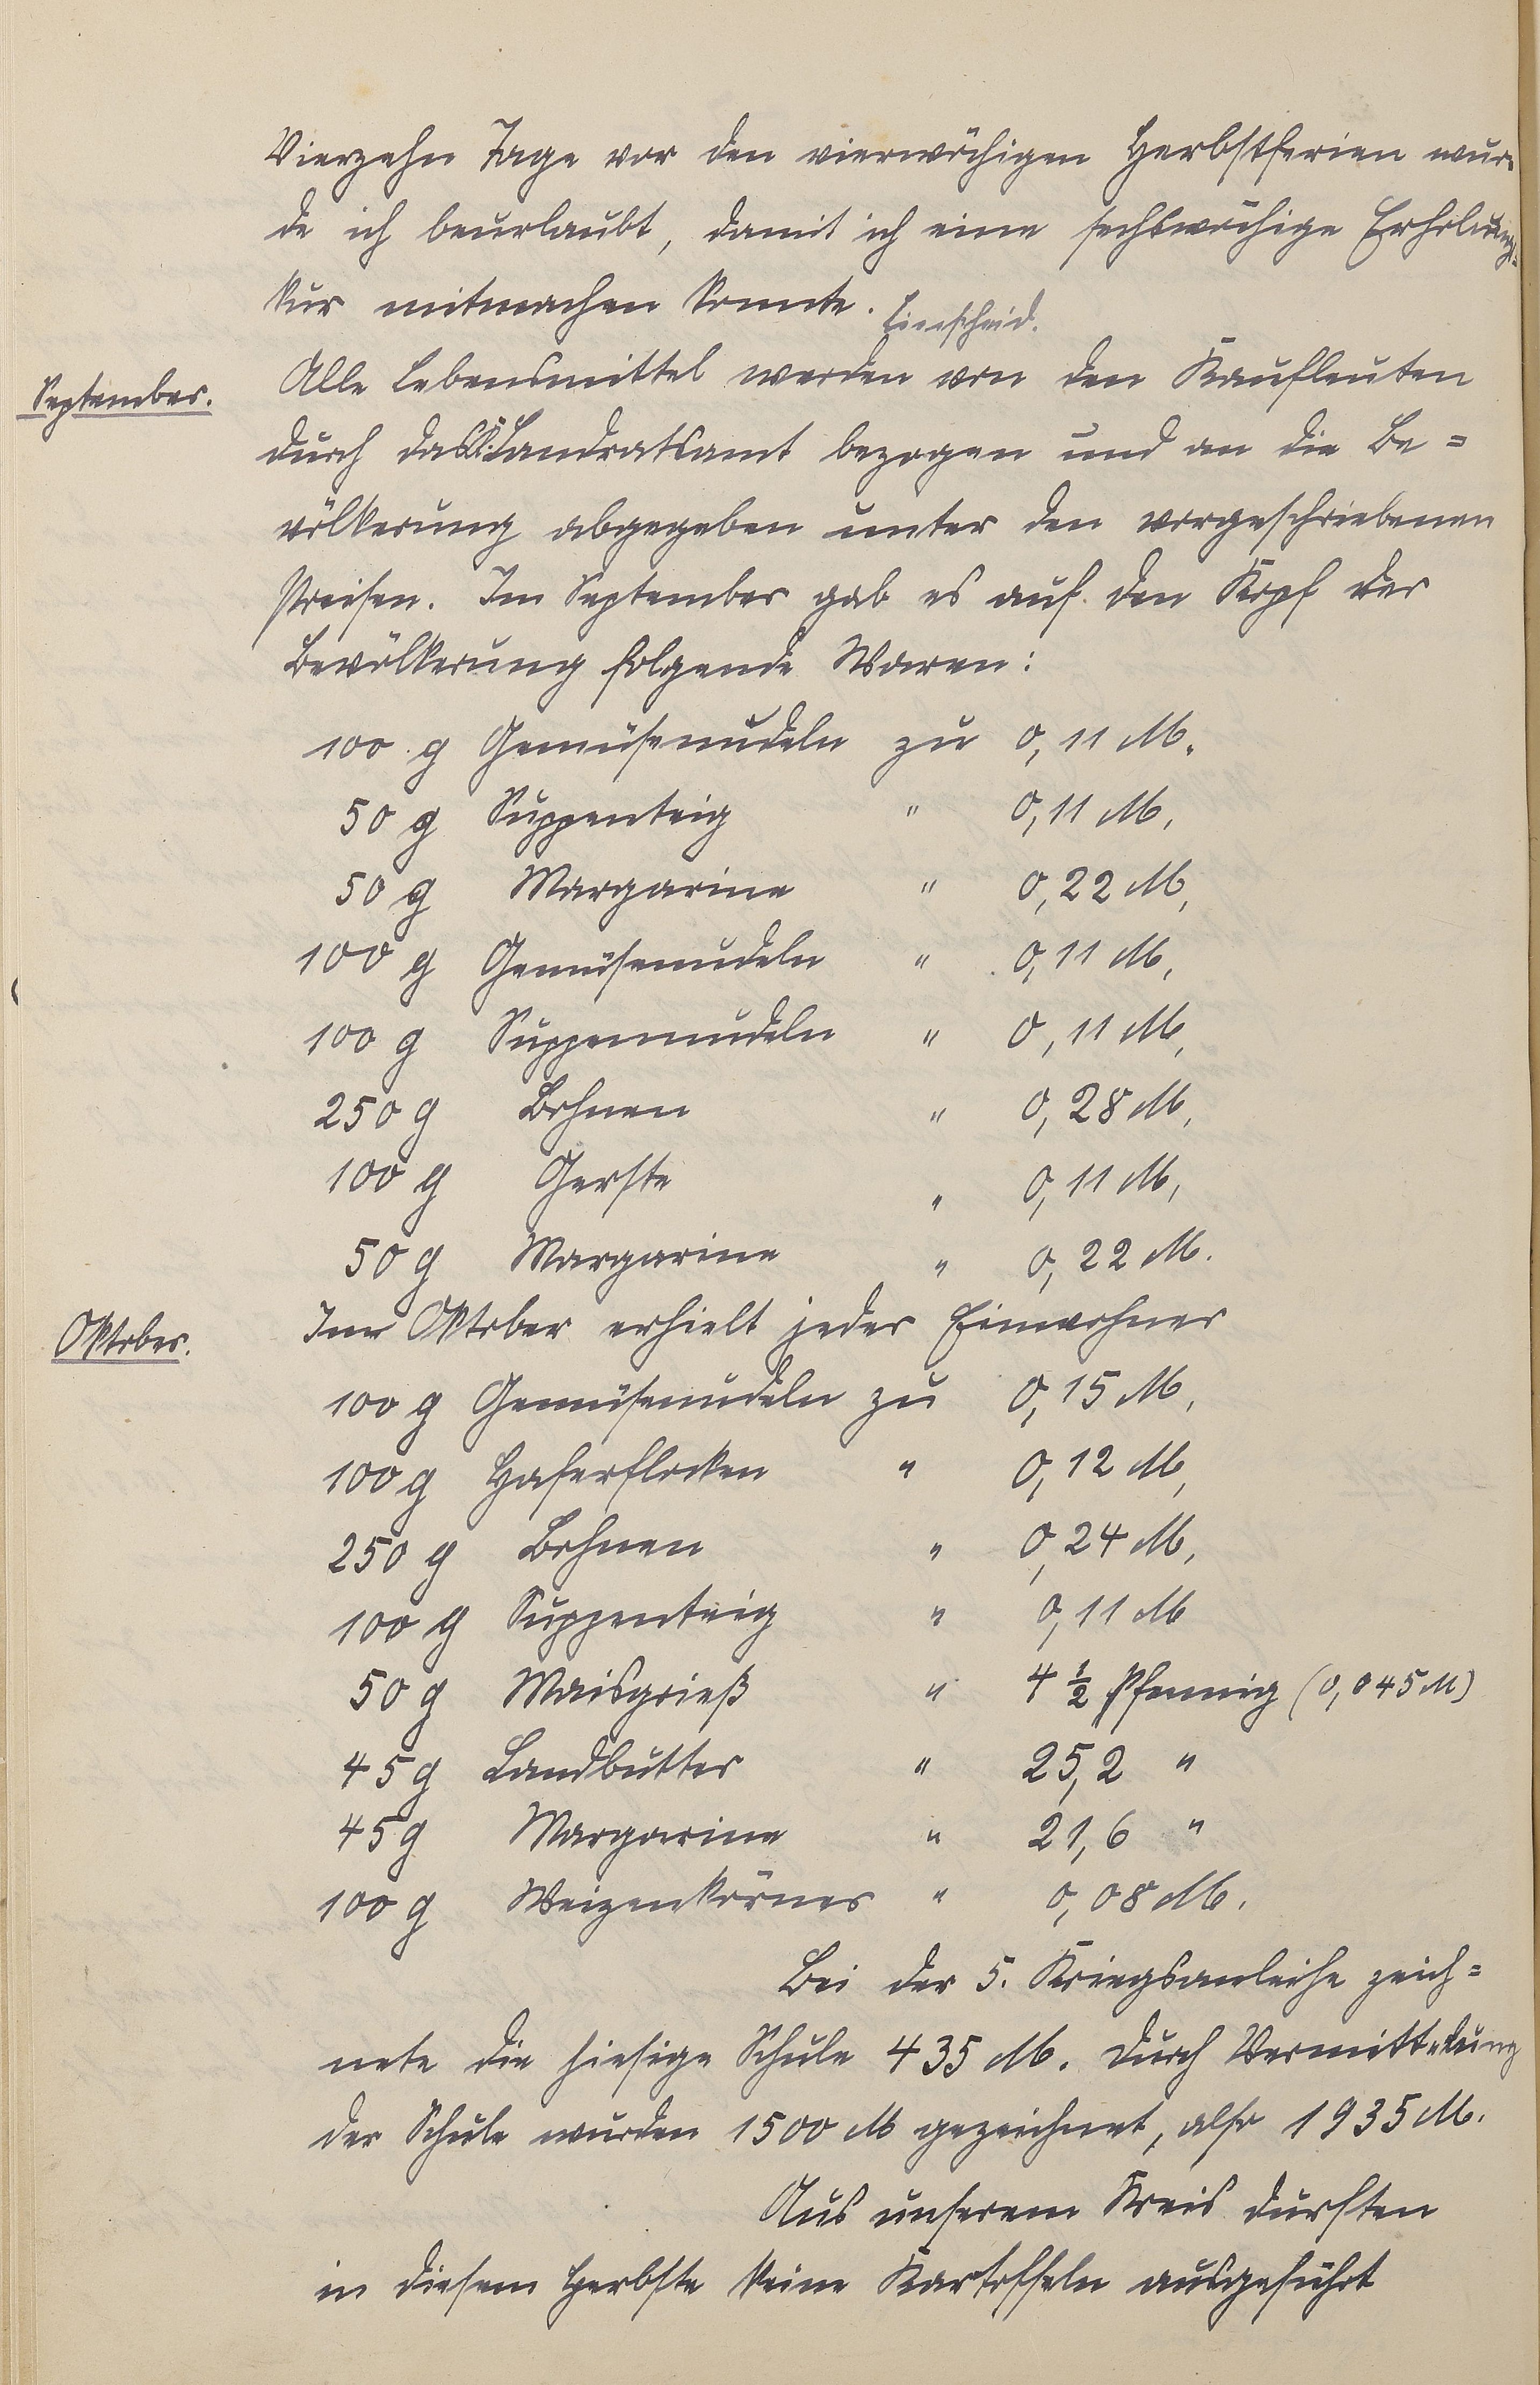 Vierzehn Tage vor den vierwöchigen Herbstferien wur-
de ich beurlaubt, damit ich eine sechswöchige Erholungs-
kur mitmachen konnte. Einscheid.
September. Alle Lebensmittel werden von den Kaufleuten
durch das K. Landratsamt bezogen und an die Be=
völkerung abgegeben unter den vorgeschriebenen
Preisen. Im September gab es auf den Kopf der
Bevölkerung folgende Waren:
100 g Gemüsenudeln zu 0,11 M.
50 g Suppenteig " 0,11 M,
50 g Margarine " 0,22 M,
100 g Gemüsenudeln " 0,11 M,
100 g Suppennudeln " 0,11 M,
250 g Bohnen " 0,28 M,
100 g Gerste " 0,11 M,
50 g Margarine " 0,22 M.
Oktober. Im Oktober erhielt jeder Einwohner
100 g Gemüsenudeln zu 0,15 M,
100 g Haferflocken " 0,12 M,
250 g Bohnen " 0,24 M,
100 g Suppenteig " 0,11 M
50 g Maisgrieß " 4 1/2 Pfennig (0,045 M)
45 g Landbutter " 25,2 "
45 g Margarine " 21,6 "
100 g Weizenkörner " 0,08 M.
Bei der 5. Kriegsanleihe zeich=
nete die hiesige Schule 435 M. Durch Vermittelung
der Schule wurden 1500 M gezeichnet, also 1935 M.
Aus unserem Kreis durften
in diesem Herbste keine Kartoffeln ausgeführt